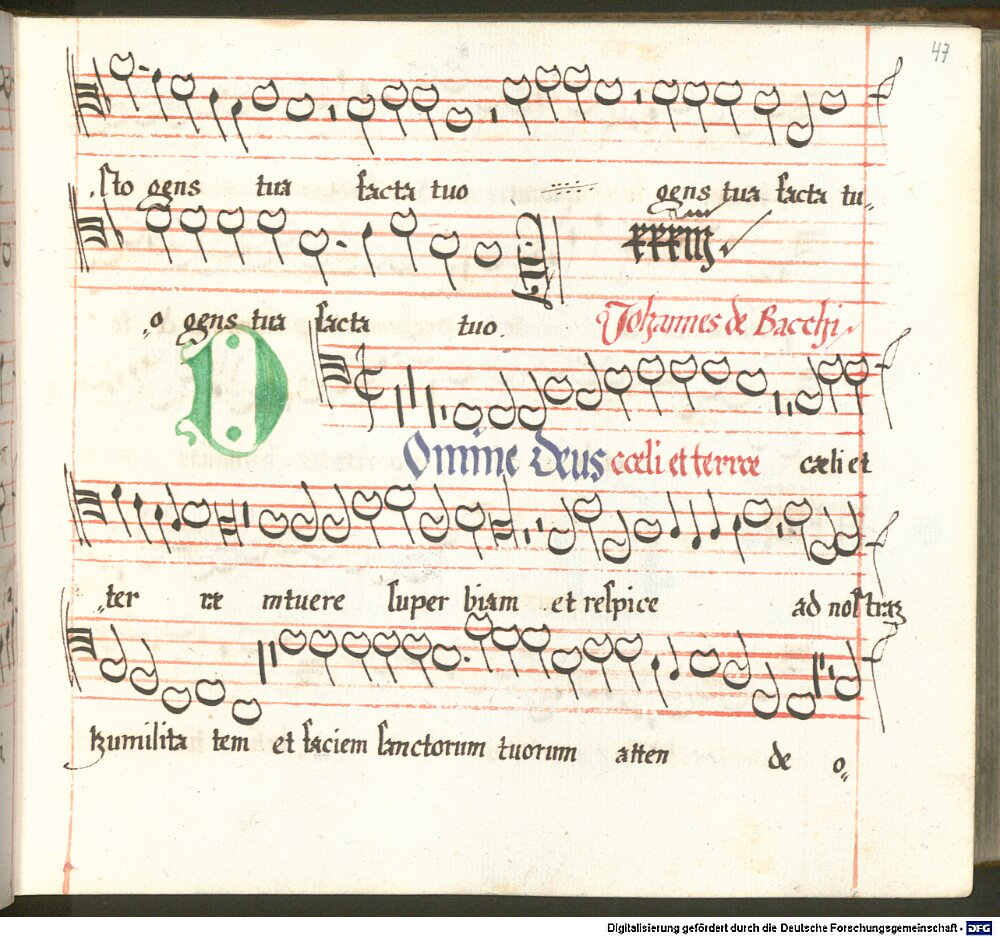 47
sto gens tua facta tuo gens tua facta tu„
xxxiii
„o gens tua facta tuo.
Johannes de Bacchi
Domine Deus cœli et terræ cæli et
„ter ræ intuere super biam et respice ad nostram
humilita tem et faciem sanctorum tuorum atten de o„
Digitalisierung gefördert durch die Deutsche Forschungsgemeinschaft - DFG